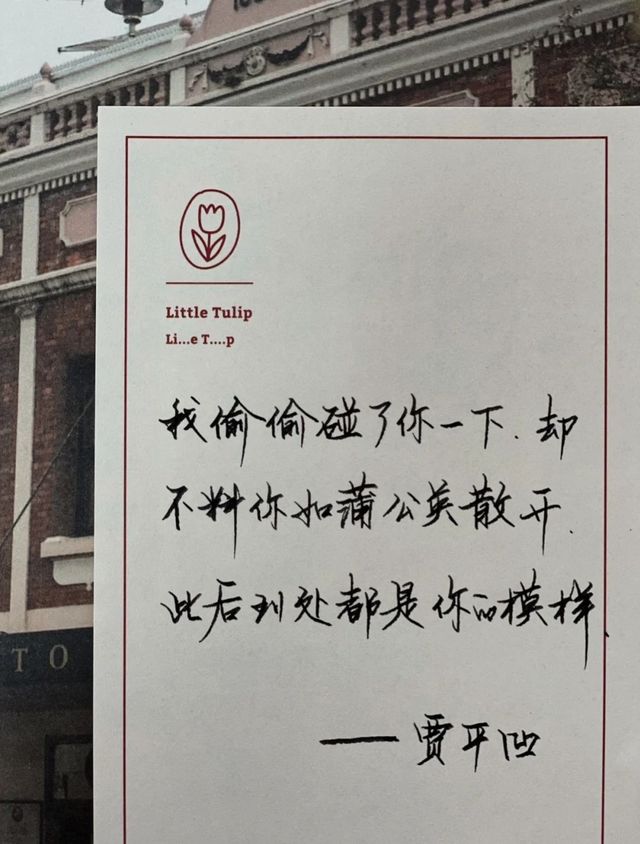 Little Tulip
Li...e T....p
我偷偷碰了你一下.却
不料你如蒲公英散开.
此后到处都是你的模样.
——贾平凹
TO